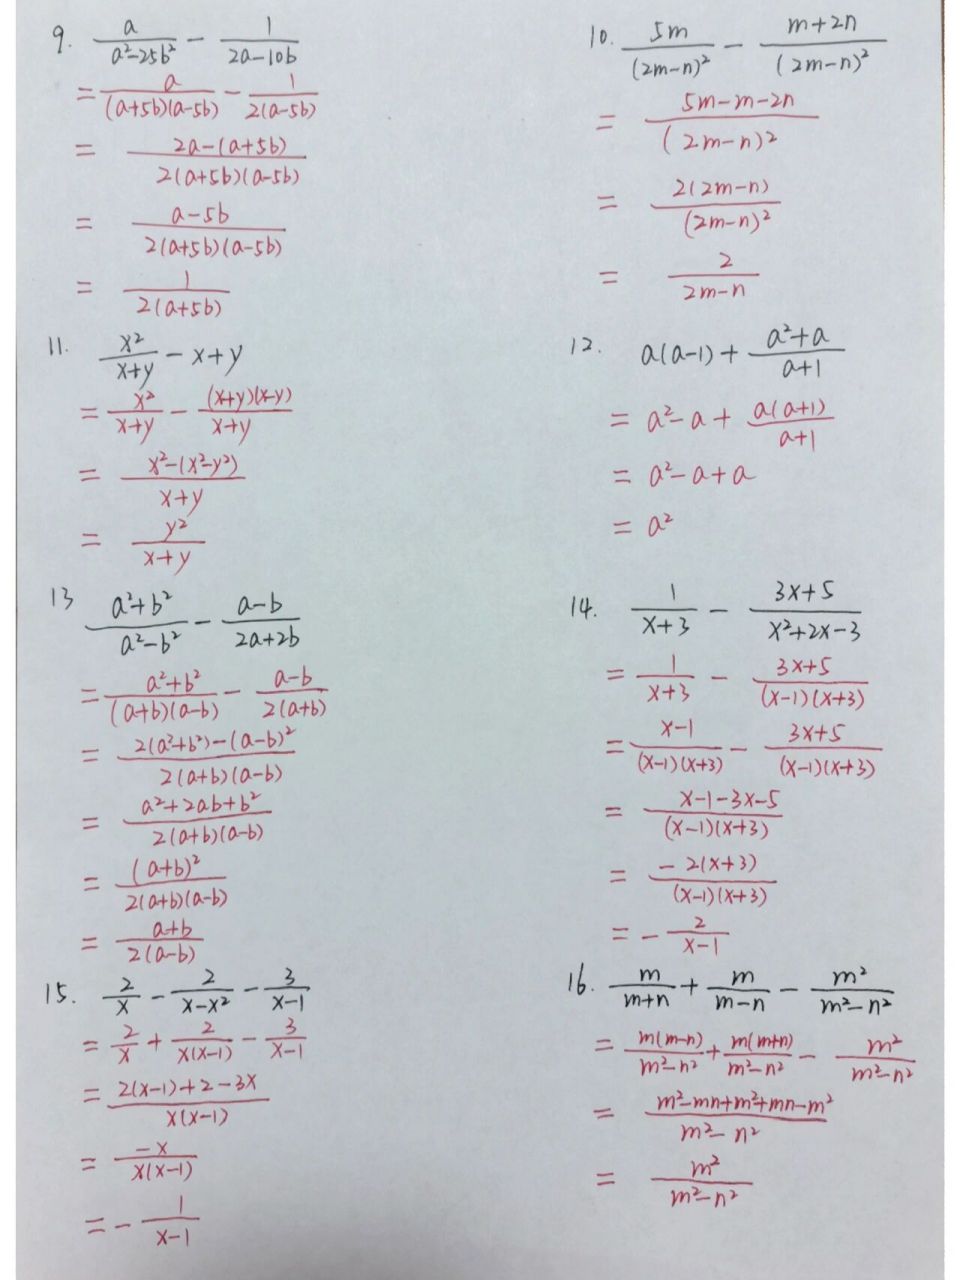 9. a/(a²-25b²) - 1/(2a-10b)
= a/((a+5b)(a-5b)) - 1/(2(a-5b))
= (2a-(a+5b))/(2(a+5b)(a-5b))
= (a-5b)/(2(a+5b)(a-5b))
= 1/(2(a+5b))
10. 5m/(2m-n)² - (m+2n)/(2m-n)²
= (5m-m-2n)/(2m-n)²
= 2(2m-n)/(2m-n)²
= 2/(2m-n)
11. x²/(x+y) - x+y
= x²/(x+y) - (x+y)(x-y)/(x+y)
= (x²-(x²-y²))/(x+y)
= y²/(x+y)
12. a(a-1) + (a²+a)/(a+1)
= a²-a + a(a+1)/(a+1)
= a²-a+a
= a²
13 (a²+b²)/(a²-b²) - (a-b)/(2a+2b)
= (a²+b²)/((a+b)(a-b)) - (a-b)/(2(a+b))
= (2(a²+b²)-(a-b)²)/(2(a+b)(a-b))
= (a²+2ab+b²)/(2(a+b)(a-b))
= (a+b)²/(2(a+b)(a-b))
= (a+b)/(2(a-b))
14. 1/(x+3) - (3x+5)/(x²+2x-3)
= 1/(x+3) - (3x+5)/((x-1)(x+3))
= (x-1)/((x-1)(x+3)) - (3x+5)/((x-1)(x+3))
= (x-1-3x-5)/((x-1)(x+3))
= -2(x+3)/((x-1)(x+3))
= - 2/(x-1)
15. 2/x - 2/(x-x²) - 3/(x-1)
= 2/x + 2/(x(x-1)) - 3/(x-1)
= (2(x-1)+2-3x)/(x(x-1))
= -x/(x(x-1))
= - 1/(x-1)
16. m/(m+n) + m/(m-n) - m²/(m²-n²)
= m(m-n)/(m²-n²) + m(m+n)/(m²-n²) - m²/(m²-n²)
= (m²-mn+m²+mn-m²)/(m²-n²)
= m²/(m²-n²)